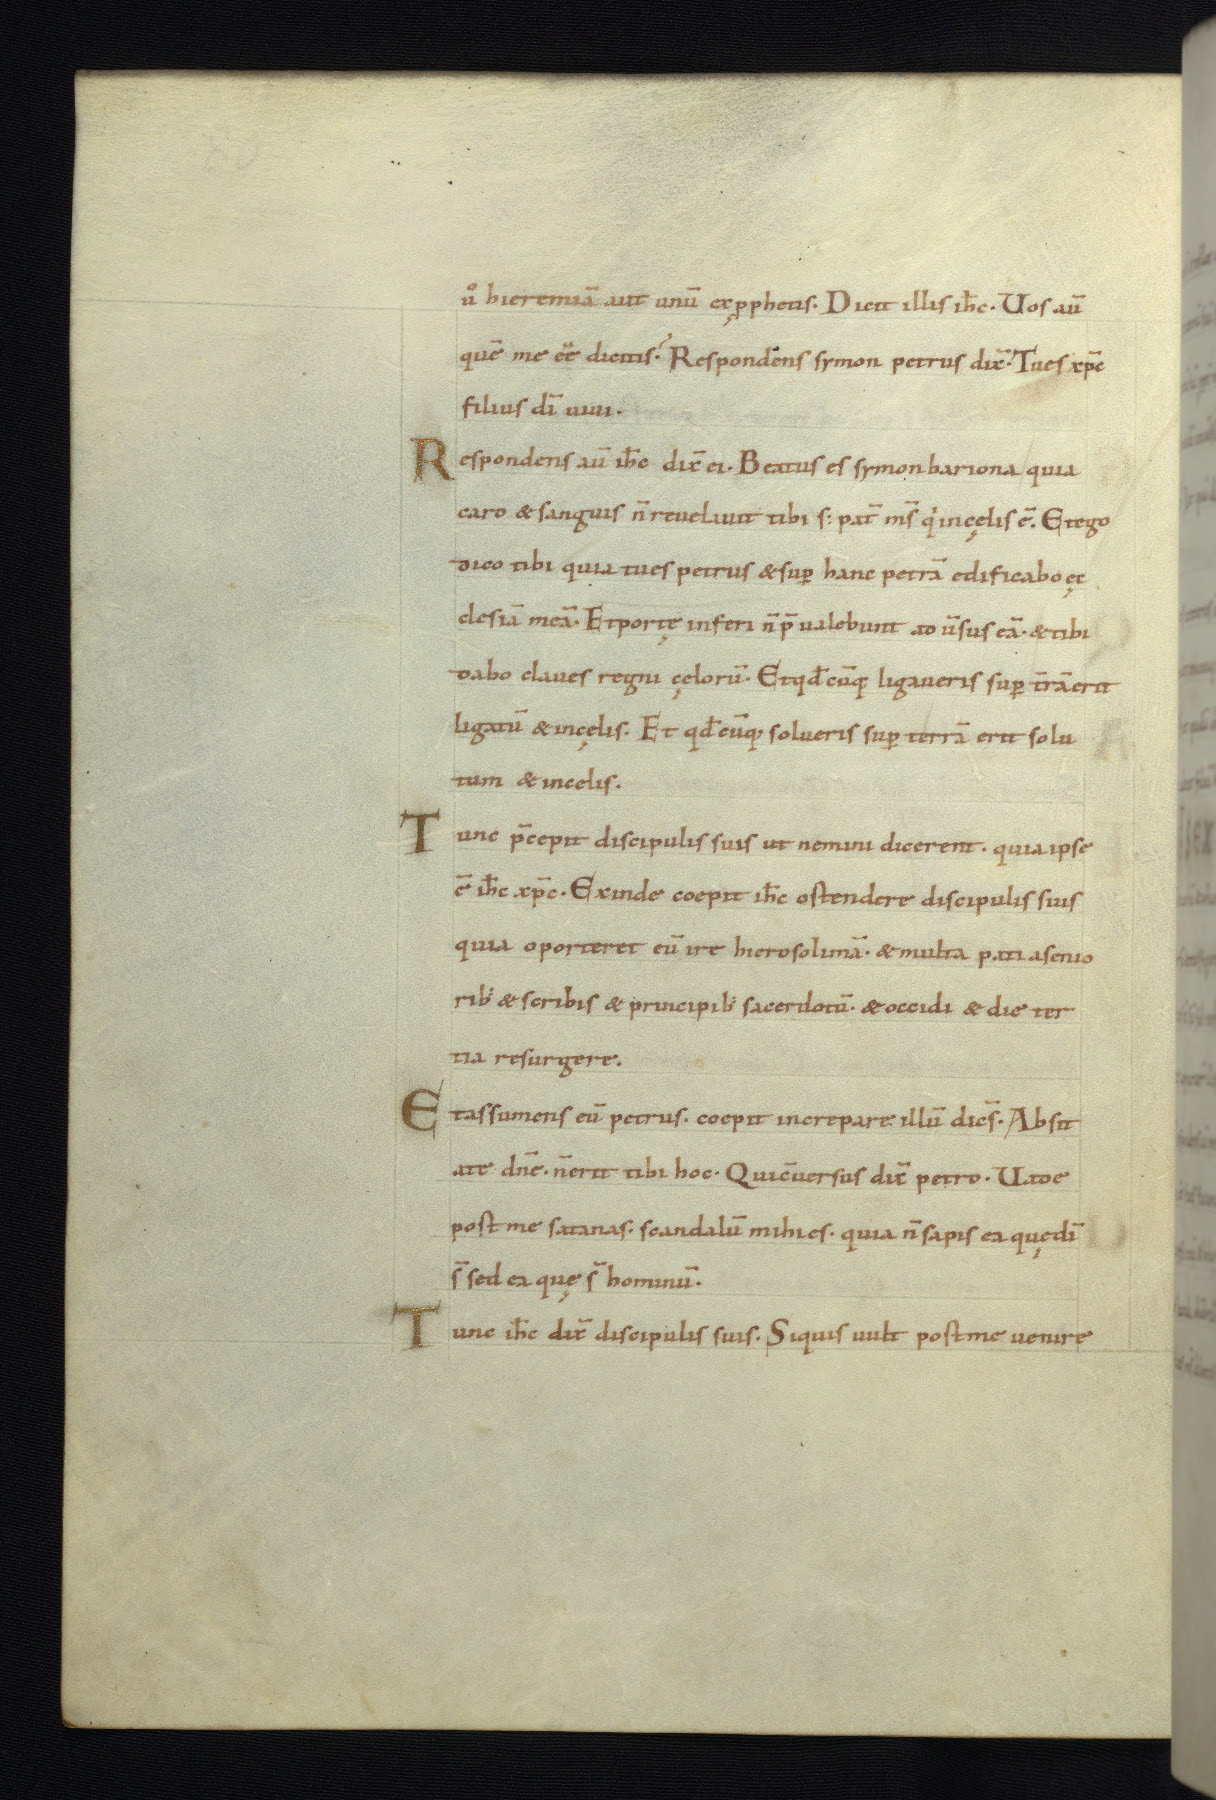 uͦ hieremiā aut unū ex p̱phetis. Dicit illis ihc̄. Uos aū
quē me eē̄ dicitis? Respondens symon petrus dix̄. Tu es xp̄c
filius dī uiui.
Respondens aū ihc̄ dix̄ ei. Beatus es symon bariona quia
caro & sanguis n̄ reuelauit tibi s: pat̄ ms̄ q' in cęlis ē. Et ego
dico tibi quia tu es petrus & suꝑ hanc petrā edificabo ęc
clesiā meā. Et portę inferi n̄ p̄ualebunt adus̄us eā. & tibi
dabo claues regni cęlorū. Et qd̄cūq; ligaueris suꝑ tr̄ā erit
ligatū & in cęlis. Et qd̄cūq; solueris suꝑ terrā erit solu
tum & in celis.
Tunc p̄cepit discipulis suis ut nemini dicerent. quia ipse
ē ihc̄ xp̄c. Exinde coepit ihc̄ ostendere discipulis suis
quia oporteret eū ire hierosolimā. & multa pati a senio
rib; & scribis & principib; sacerdotū. & occidi & die ter
tia resurgere.
Et assumens eū petrus. coepit increpare illū dicēs. Absit
a te dn̄e. n̄ erit tibi hoc. Qui c̄uersus dix̄ petro. Uade
post me satanas. scandalū mihi es. quia n̄ sapis ea quę dī
s̄ sed ea quę s̄ hominū.
Tunc ihc̄ dix̄ discipulis suis. Siquis uult post me uenire